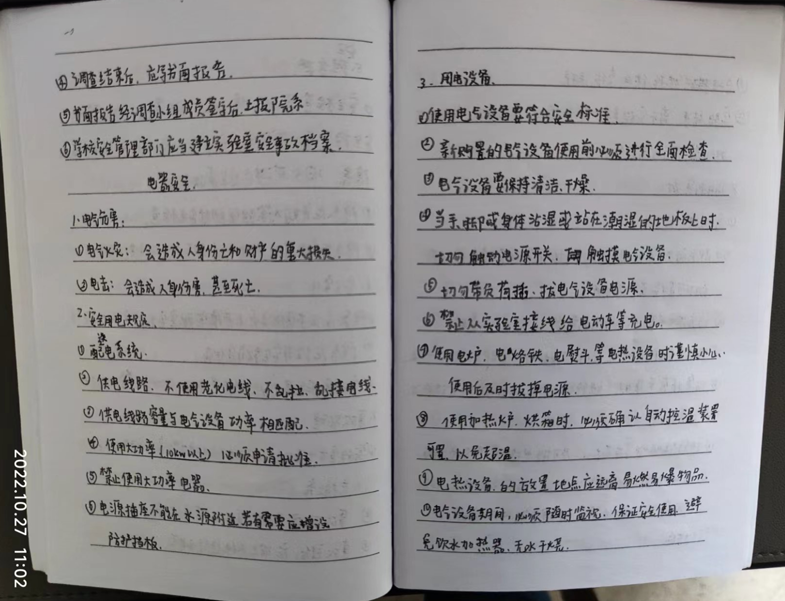 ④调查结束后，应写书面报告。
⑤书面报告经调查小组成员签字后，上报院系
⑥学校安全管理部门应当建立实验室安全事故档案.
电器安全.
1.电气伤害:
①电气火灾：会造成人身伤亡和财产的重大损失.
②电击：会造成人身伤害，甚至死亡.
2.安全用电规定
①配电系统.
②供电线路. 不使用老化电线，不乱拉、乱接电线.
③供电线路容量与电气设备功率相匹配.
④使用大功率(10kw以上)必须申请批准.
⑤禁止使用大功率电器.
⑥电源插座不能在水源附近.若有需要应增设
防护挡板.
3.用电设备.
①使用电气设备要符合安全标准.
②新购置的电气设备使用前必须进行全面检查.
③电气设备要保持清洁、干燥.
④当手、脚或身体沾湿或站在潮湿的地板上时.
切勿触动电源开关、触摸电气设备.
⑤切勿带负荷插、拔电气设备电源.
⑥禁止从实验室接线给电动车等充电。
⑦使用电炉、电烙铁、电熨斗等电热设备时谨慎小心.
使用后及时拔掉电源.
⑧使用加热炉、烘箱时，必须确认自动控温装置
可靠，以免超温.
⑨电热设备的放置地点应远离易燃易爆物品.
⑩电气设备期间，必须随时监视，保证安全使用 避
免饮水加热器、无水干烧.
2022.10.27 11:02